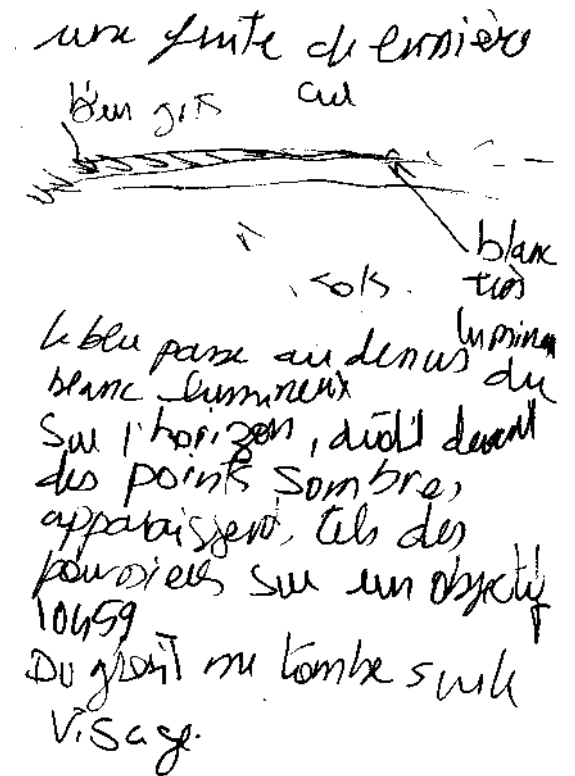 une fente de lumière
bleu gris
ciel
blanc
très
lumineux
sols.
le bleu passe au dessus du
blanc lumineux
Sur l'horizon, droit devant
des points sombres
apparaissent, tels des
poussières sur un objectif
10h59
Du grésil me tombe sur le
visage.